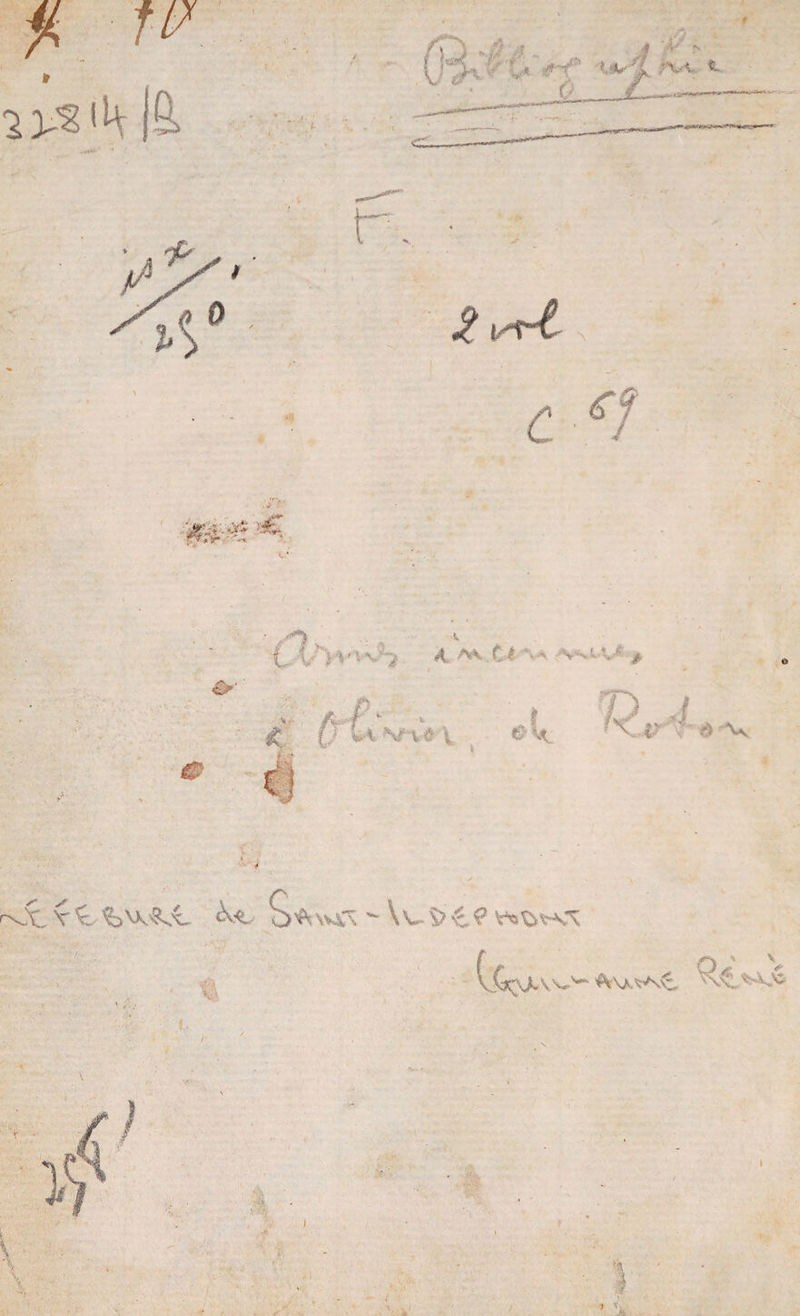 Bibliographie
32814/B
F.
250
2 vol
C. 69
Armes inconnues
à Olivier, de Roton
LEFEBURE de SAINT-ILDEPHONT
(GUILLAUME RÉNÉ